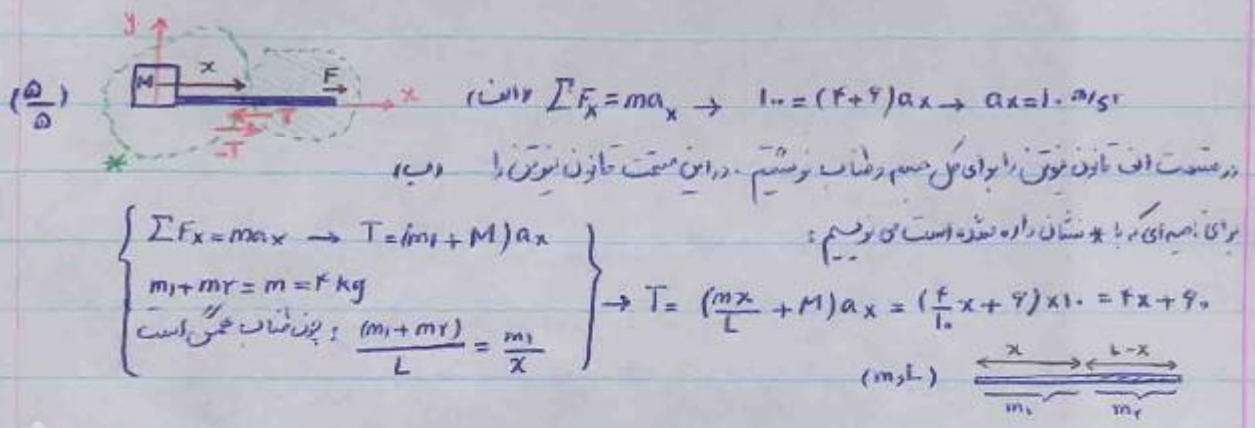 (۵/۵)
y
M x F x
T -T
*
الف) ΣFₓ = maₓ → ۱۰۰ = (۴+۶)aₓ → aₓ = ۱۰ m/s²
در قسمت الف قانون نیوتن را برای کل جسم و طناب نوشتیم . در این قسمت قانون نیوتن را (ب)
برای ناحیه‌ای که با * نشان داده شده است می نویسیم :
ΣFₓ = maₓ → T = (m₁ + M)aₓ
m₁ + m₂ = m = ۴ kg
چون طناب همگن است : (m₁+m₂)/L = m₁/x
→ T = (mx/L + M)aₓ = (۴/۱۰ x + ۶) × ۱۰ = ۴x + ۶۰
(m,L) x L-x
m₁ m₂